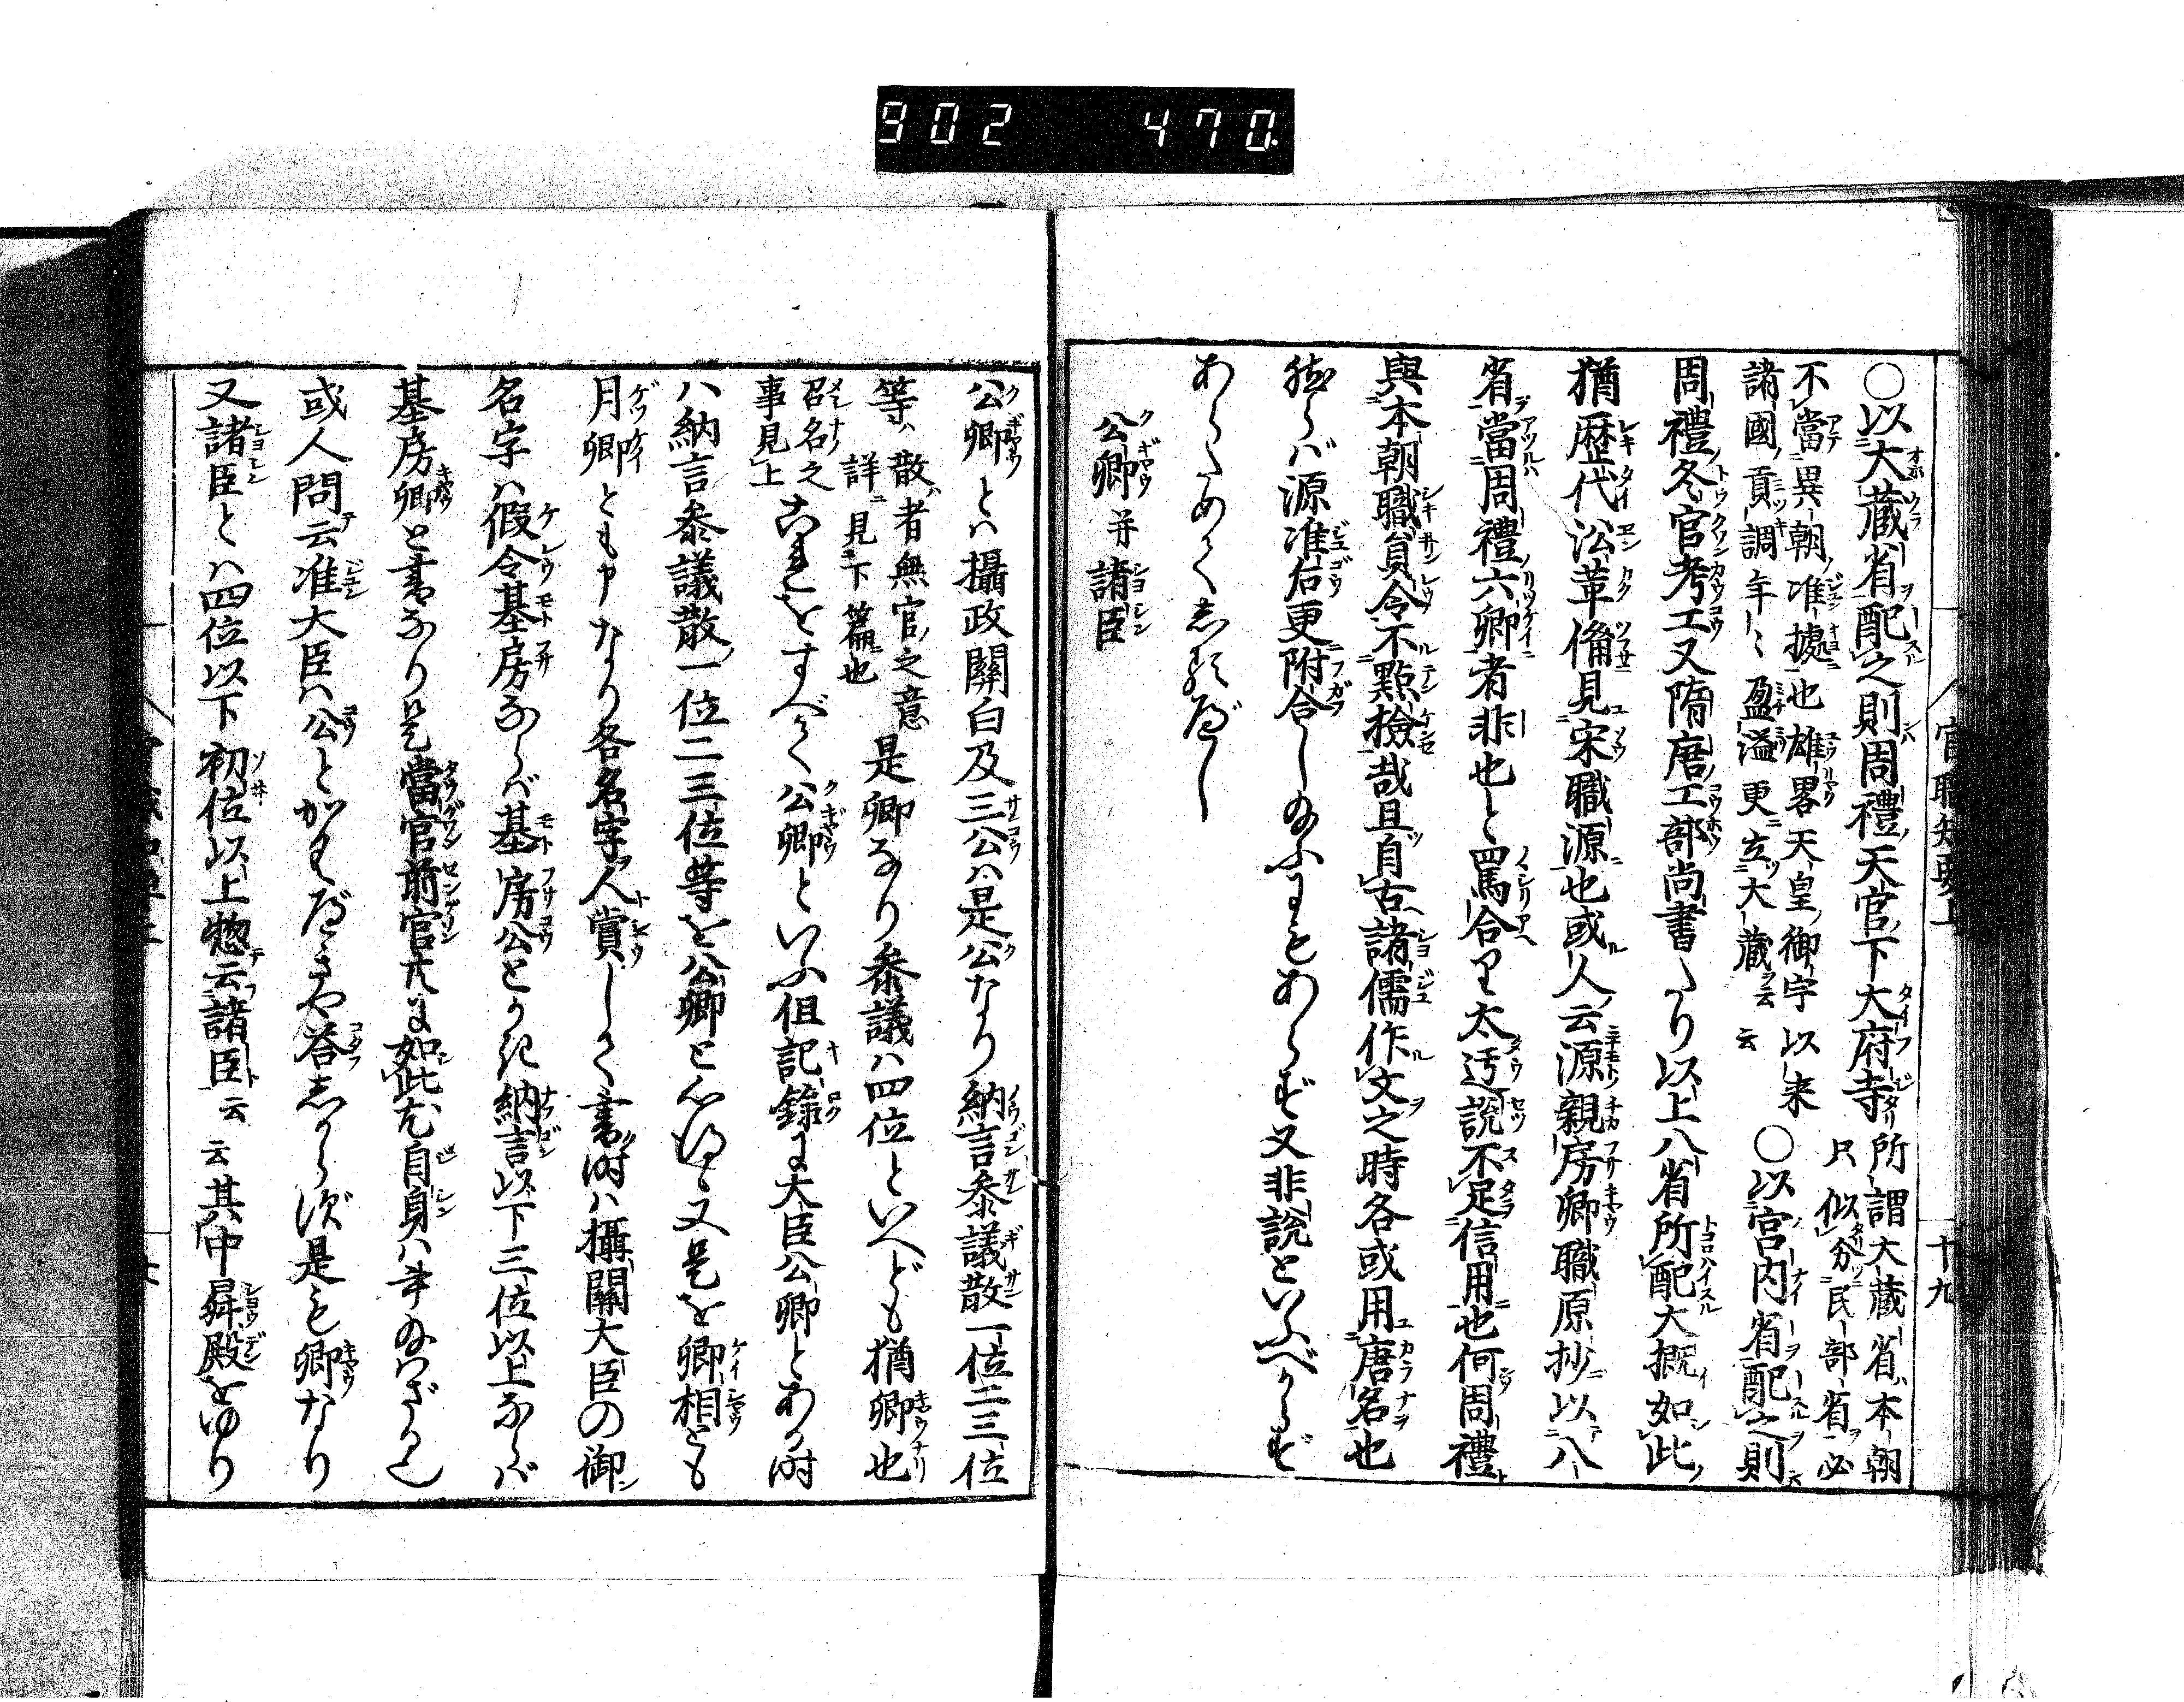 902 470.
官職知要上
十九
〇以大蔵省配之則周禮天官下大府寺所謂大蔵省本朝
只似分民部省必
不當異朝准據也雄畧天皇御宇以来
諸國貢調年〻盈溢更立大蔵云云
〇以宮内省配之則
周禮冬官考工又隋唐工部尚書たり以上八省所配大概如此
猶歴代㳂革備見宋職源也或人云源親房卿職原抄以八
省當周禮六卿者非也と罵合り太迃説不足信用也何周禮
與本朝職員令不點撿哉且自古諸儒作文之時各或用唐名也
然らバ源准后更附合し給ふにもあらず又非説といふべからず
あらためてしるべし
公卿并諸臣
公卿とハ攝政關白及三公ハ是公なり納言叅議散一位二三位
等ハ散者無官之意
詳見下篇也
是卿なり叅議ハ四位といへども猶卿也
召名之
事見上
これをすべて公卿といふ但記録に大臣公卿とある時
ハ納言叅議散一位二三位等を公卿と心得よ又是を卿相とも
月卿とも申なり各名字人賞しかく書時ハ攝關大臣の御
名字ハ假令基房ならバ基房公とかき納言以下三位以上ならバ
基房卿と書なり是當官前官共に如此尤自身ハ書給ハざる也
或人問云准大臣ハ公とかくべきや答しからず是も卿なり
又諸臣とハ四位以下初位以上惣云諸臣云云其中昇殿をゆり